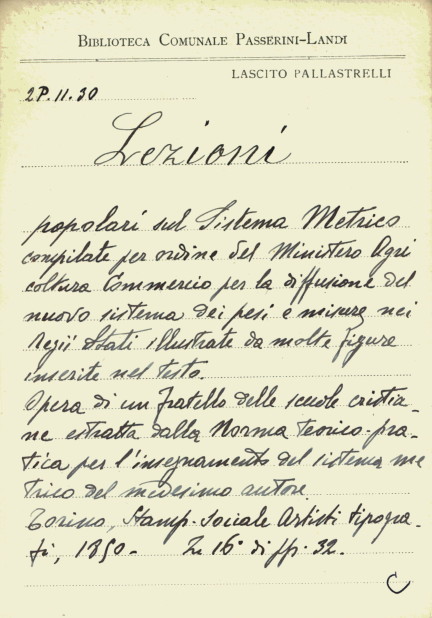 BIBLIOTECA COMUNALE PASSERINI-LANDI
LASCITO PALLASTRELLI
2P.11.30
Lezioni
popolari sul Sistema Metrico
compilate per ordine del Ministero Agri
coltura Commercio per la diffusione del
nuovo sistema dei pesi e misure nei
Regii Stati illustrate da molte figure
inserite nel testo.
Opera di un fratello delle scuole cristia-
ne estratta dalla Norma teorico-pra-
tica per l'insegnamento del sistema me
trico del medesimo autore.
Torino, Stamp. Sociale Artisti tipogra-
fi, 1850. - In 16° di pp. 32.